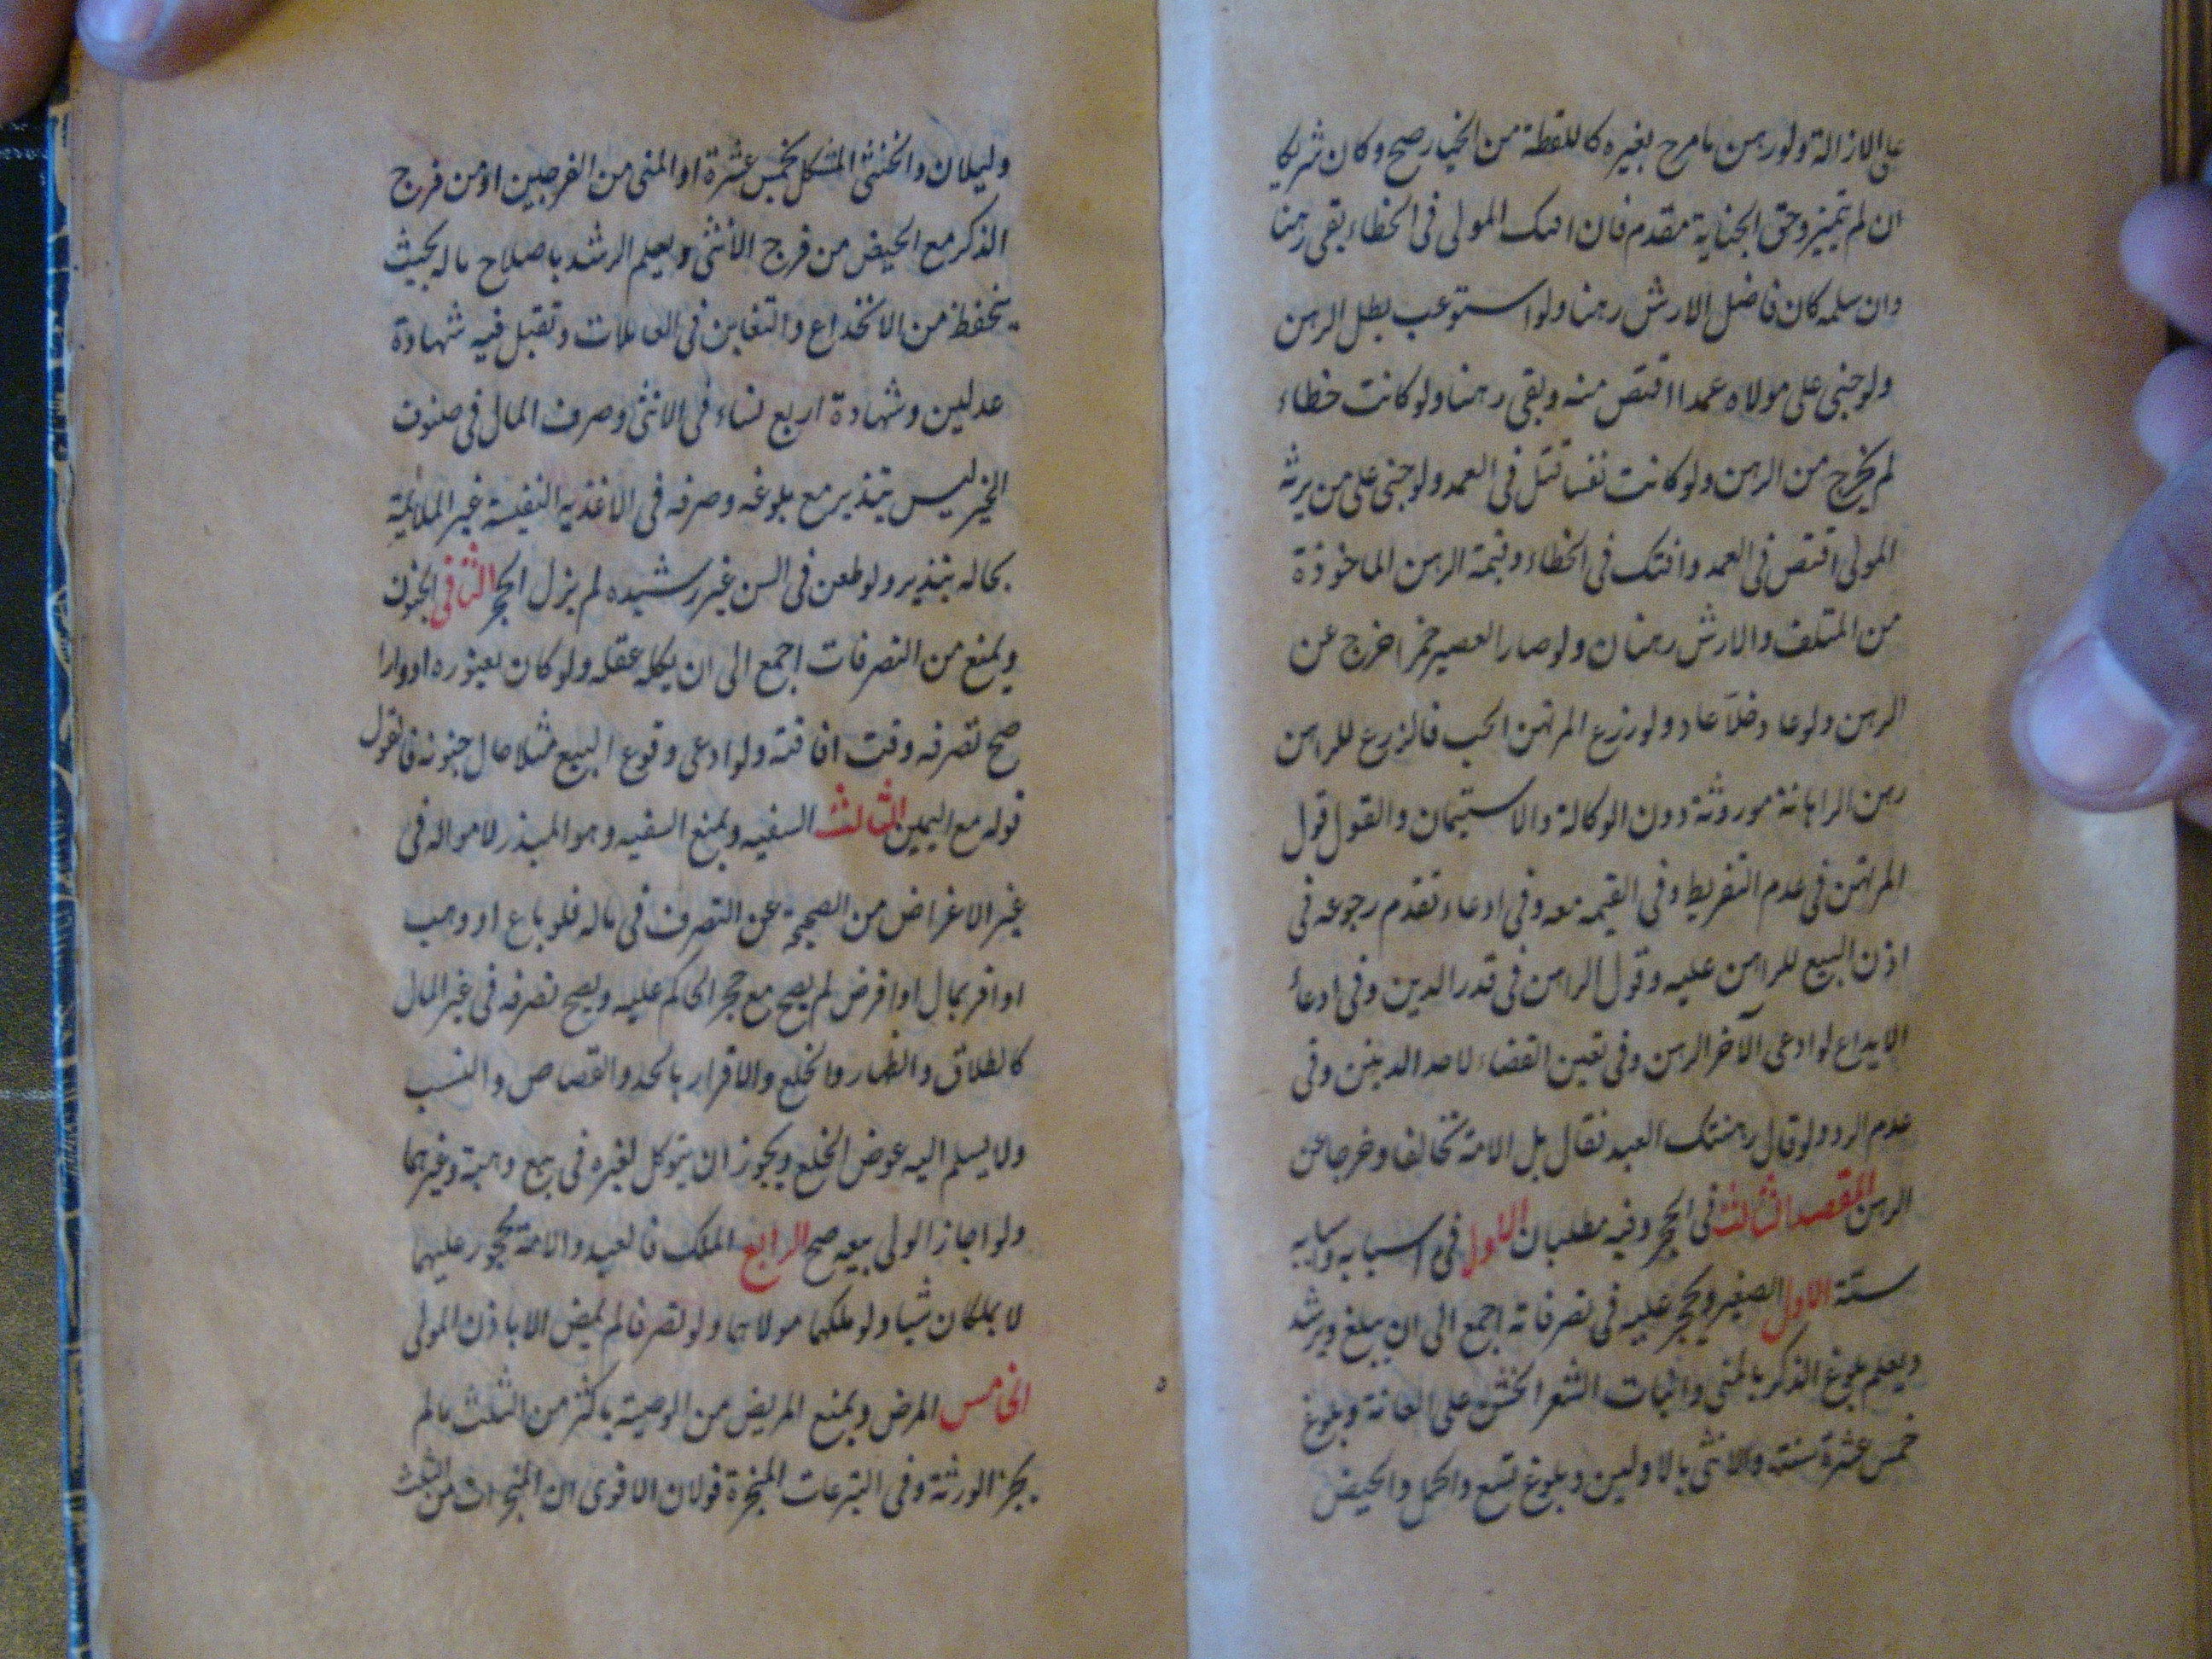 على الازالة ولو رهن ما مرج بغيره كاللقطة من الخيار صح وكان شريكا
ان لم يتميز وحق الجناية مقدم فان افتك المولى فى الخطاء بقى رهنا
وان سلمه كان فاضل الارش رهنا ولو استوعب بطل الرهن
ولو جنى على مولاه عمدا اقتص منه وبقى رهنا ولو كانت خطاء
لم يخرج من الرهن ولو كانت نفسا قتل فى العمد ولو جنى على من يرثه
المولى اقتص فى العمد وافتك فى الخطاء وقيمة الرهن الماخوذة
من المتلف والارش رهنان ولو صار العصير خمرا خرج عن
الرهن ولو عاد خلا عاد ولو زرع المرتهن الحب فالزرع للراهن
رهن الراهانة موروثة دون الوكالة والاستيمان والقول قول
المرتهن فى عدم التفريط وفى القيمه معه وفى ادعاء تقدم رجوعه فى
اذن البيع للراهن عليه وقول الراهن فى قدر الدين وفى ادعاء
الايداع لو ادعى الآخر الرهن وفى تعين القضاء لاحد الدينين وفى
عدم الرد ولو قال رهنتك العبد فقال بل الامة تخالفا وخرجا عن
الرهن المقصد الثالث فى الحجر وفيه مطلبان الاول فى اسبابه واسبابه
ستة الاول الصغير ويحجر عليه فى تصرفاته اجمع الى ان يبلغ ويرشد
ويعلم بلوغ الذكر بالمنى وانبات الشعر الخشن على العانة وبلوغ
خمس عشرة سنته والانثى بالاولين وبلوغ تسع والحمل والحيض
وليلان والخنثى المشكل بخمس عشرة او المنى من الفرجين او من فرج
الذكر مع الحيض من فرج الانثى ويعلم الرشد باصلاح ماله بحيث
يتحفظ من الانخداع والتغابن فى المعاملات وتقبل فيه شهادة
عدلين وشهادة اربع نساء فى الانثى وصرف المال فى صنوف
الخير ليس بتبذير مع بلوغه وصرفه فى الاغذيه النفيسة غير الملائمة
بحاله تبذير ولو طعن فى السن غير رشيده لم يزل الحجر الثانى الجنون
ويمنع من التصرفات اجمع الى ان يكمل عقله ولو كان يعتوره ادوارا
صح تصرفه وقت افاقته ولو ادعى وقوع البيع مثلا حال جنونه فالقول
قوله مع اليمين الثالث السفيه ويمنع السفيه وهو المبذر لامواله فى
غير الاغراض من الصحيحة عن التصرف فى ماله فلو باع او وهب
او اقر بمال او اقرض لم يصح مع حجر الحاكم عليه ويصح تصرفه فى غير المال
كالطلاق والظهار والخلع والاقرار بالحد والقصاص والنسب
ولا يسلم اليه عوض الخلع ويجوز ان يتوكل لغيره فى بيع وهبة وغيرهما
ولو اجاز الولى بيعه صح الرابع الملك فالعبد والامة محجور عليهما
لا يملكان شيا ولو ملكهما مولاهما ولو تصرفا لم يمض الا باذن المولى
الخامس المرض ويمنع المريض من الوصية باكثر من الثلث ما لم
يجز الورثة وفى التبرعات المنجزة قولان الاقوى ان المنجزات من الثلث